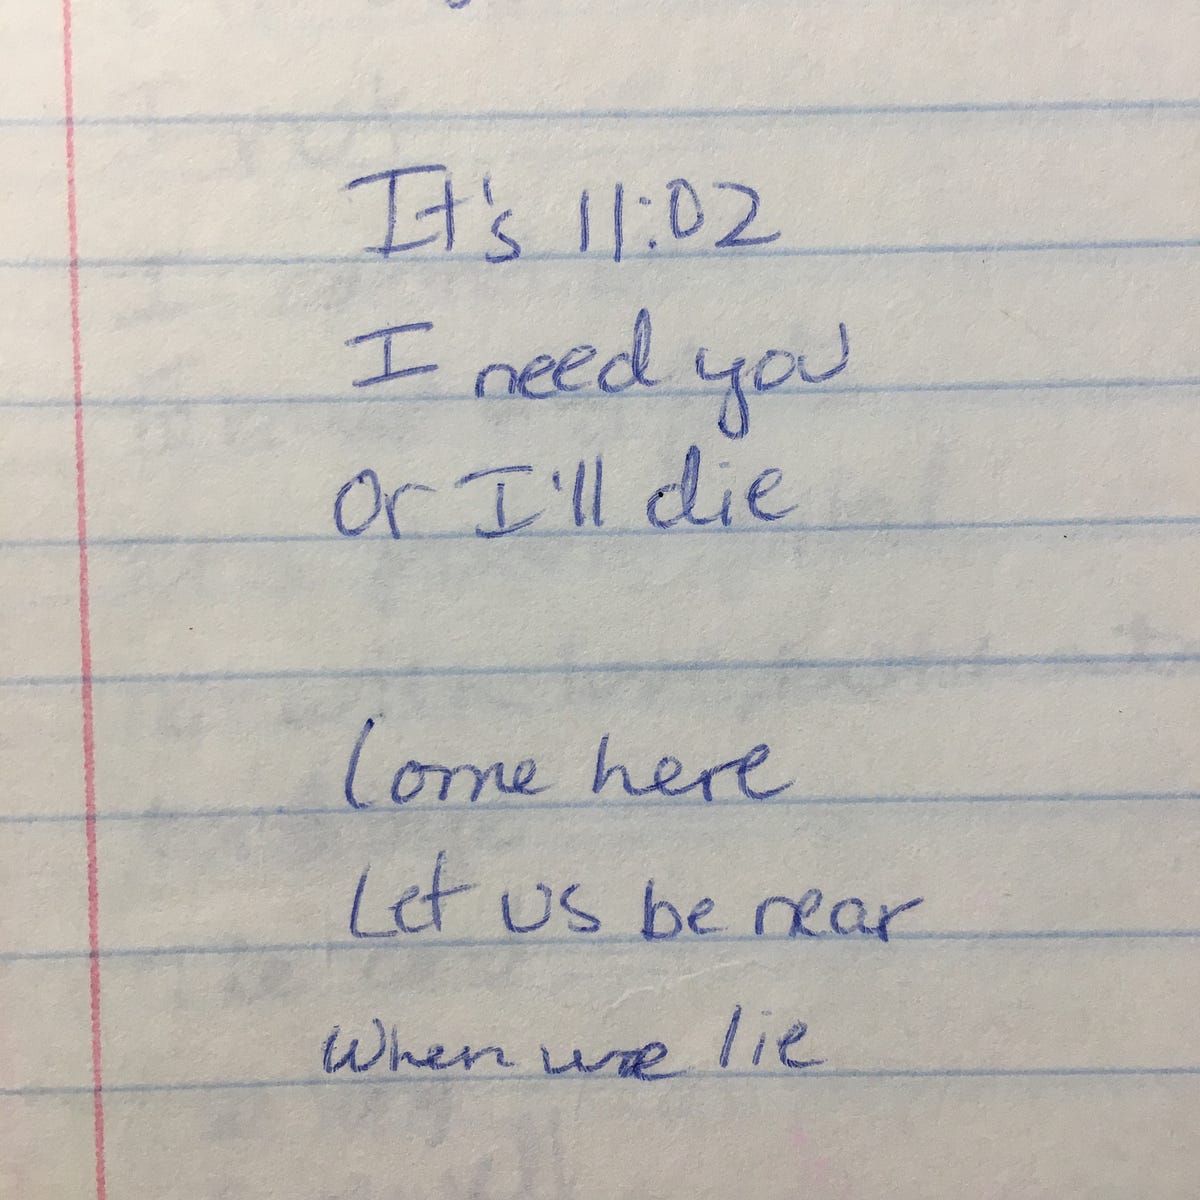 It's 11:02
I need you
Or I'll die
Come here
Let us be near
When we lie